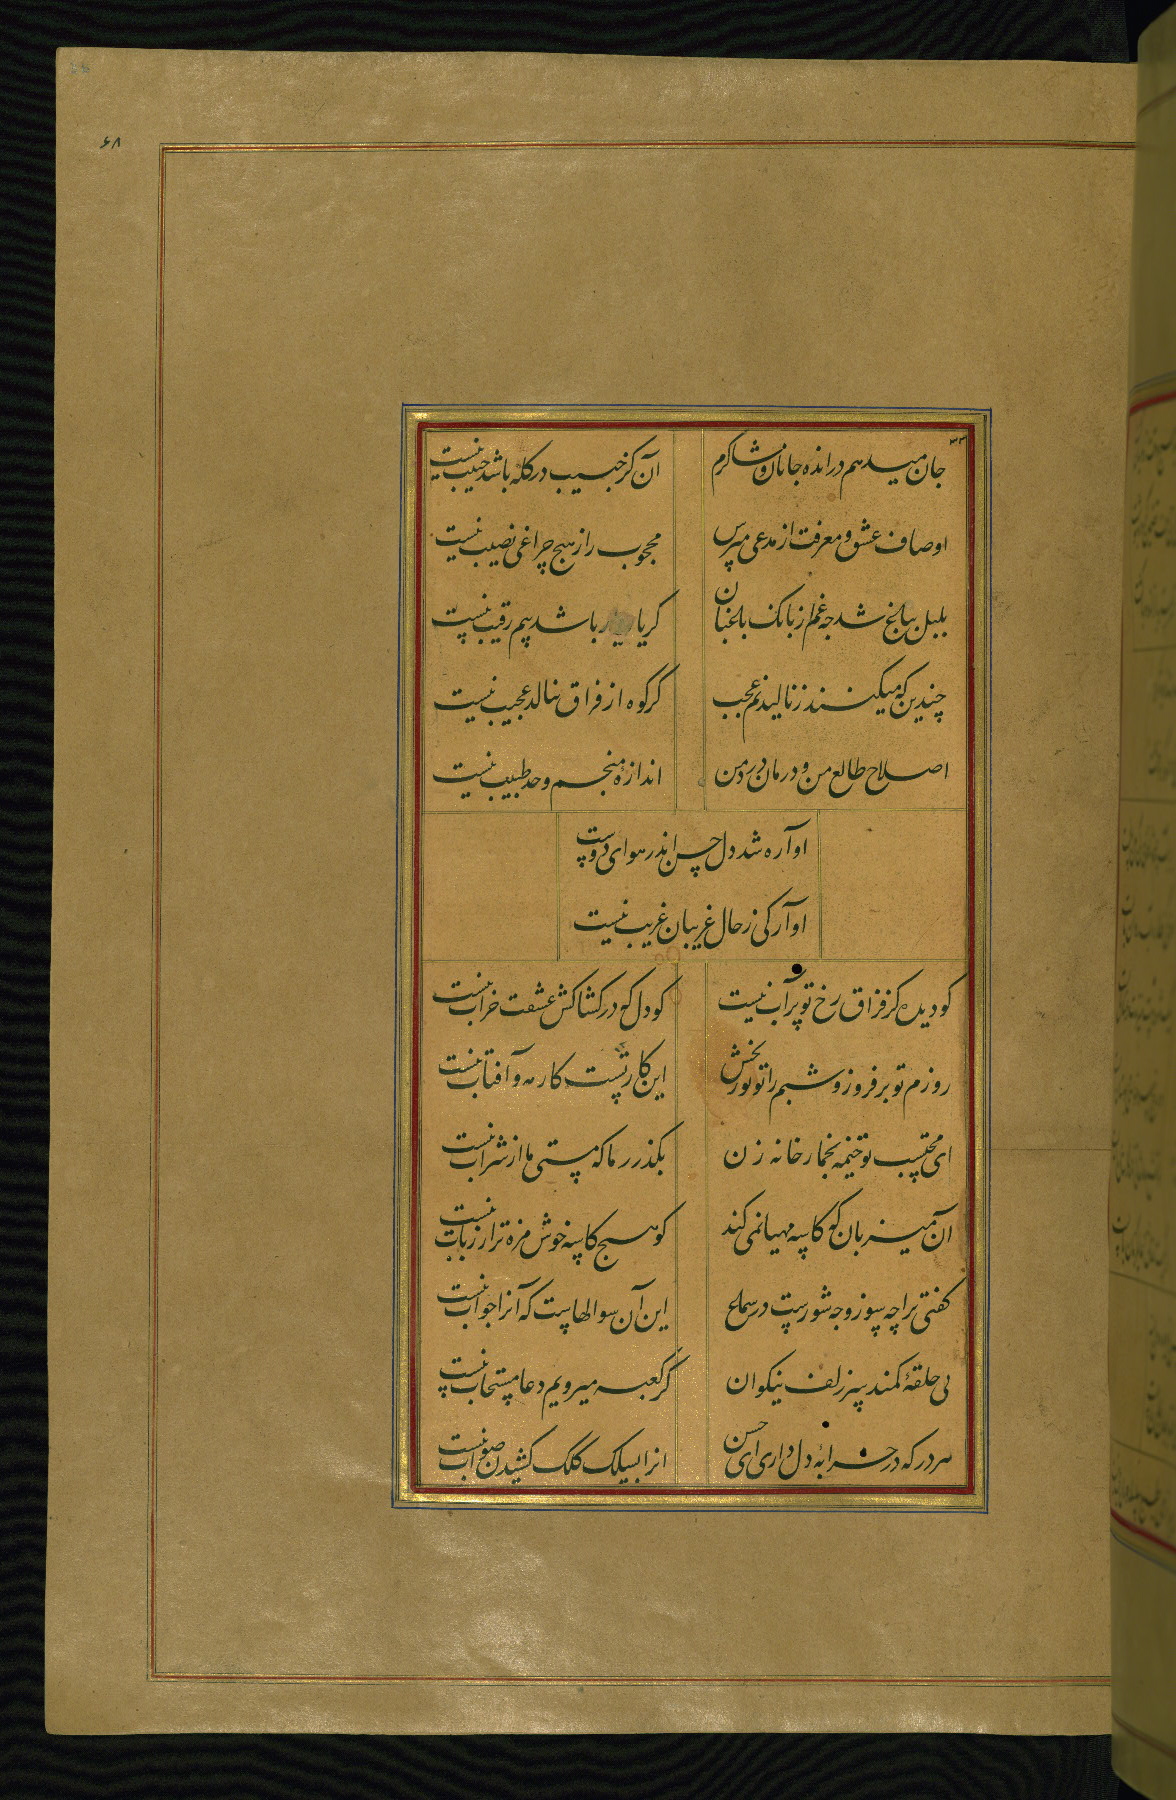 ۶۸
۳۳
جان میدهم در انده جانان و شاکرم
آن کز حبیب در گله باشد حبیب نیست
اوصاف عشق و معرفت از مدعی مپرس
محجوب را ز هیچ چراغی نصیب نیست
بلبل بباغ شد چه غم از بانک باغبان
کر یار یار باشد بیم رقیب نیست
چندین که میکنند ز نالیدنم عجب
کر کوه از فراق بنالد عجیب نیست
اصلاح طالع من و درمان درد من
اندازهٔ منجم و حد طبیب نیست
اوآره شد دل حسن اندر هوای دوست
اوآر کی ز حال غریبان غریب نیست
کو دیده کز فراق رخ تو پر آب نیست
کو دل کو در کشاکش عشقت خراب نیست
روزم تو بر فروز و شبم را تو نور بخش
این کار تست کار مه و آفتاب نیست
ای محتسب تو خیمه بخمار خانه زن
بکذر ز ما که مستی ما از شراب نیست
آن میزبان کو کاسه مهیا نمی کند
کو هیچ کاسه خوش مزه تر از رباب نیست
کفتی ترا چه سوز و چه شورست در سماع
این آن سوالهاست که آنرا جواب نیست
بی حلقهٔ کمند سر زلف نیکوان
کر کعبه میرویم دعا مستجاب نیست
هر در که در خزانهٔ دل داری ای حسن
انرا بسلک کلک کشیدن صواب نیست